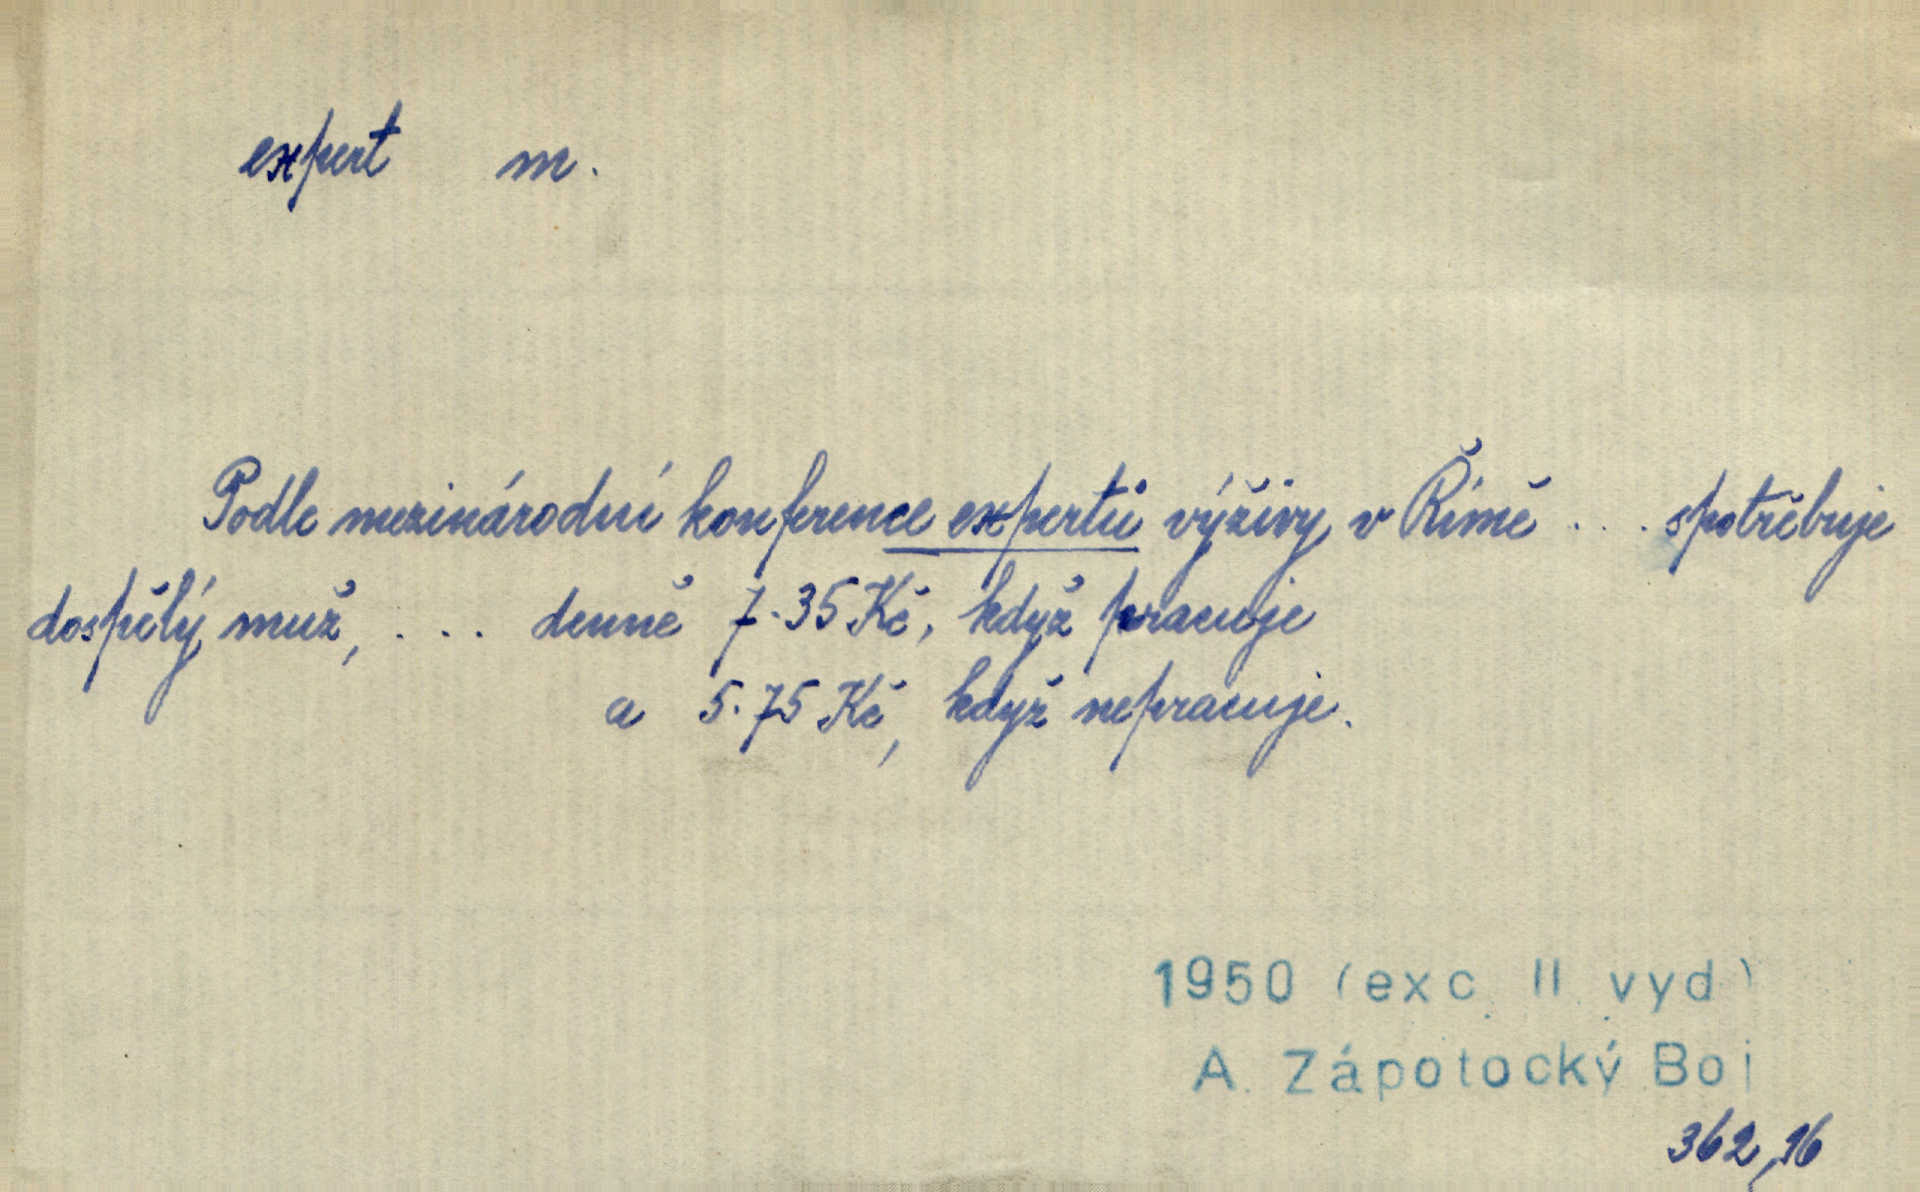 expert m.
Podle mezinárodní konference expertů výživy v Římě . . . spotřebuje
dospělý muž, . . . denně 7.35 Kč, když pracuje
a 5.75 Kč, když nepracuje.
1950 (exc. II. vyd)
A. Zápotocký Boj
362,16